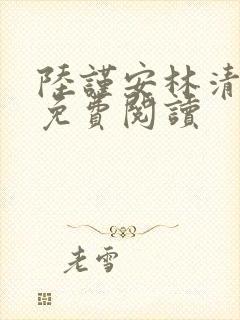 陸謹安林清
免費閱讀
老雪